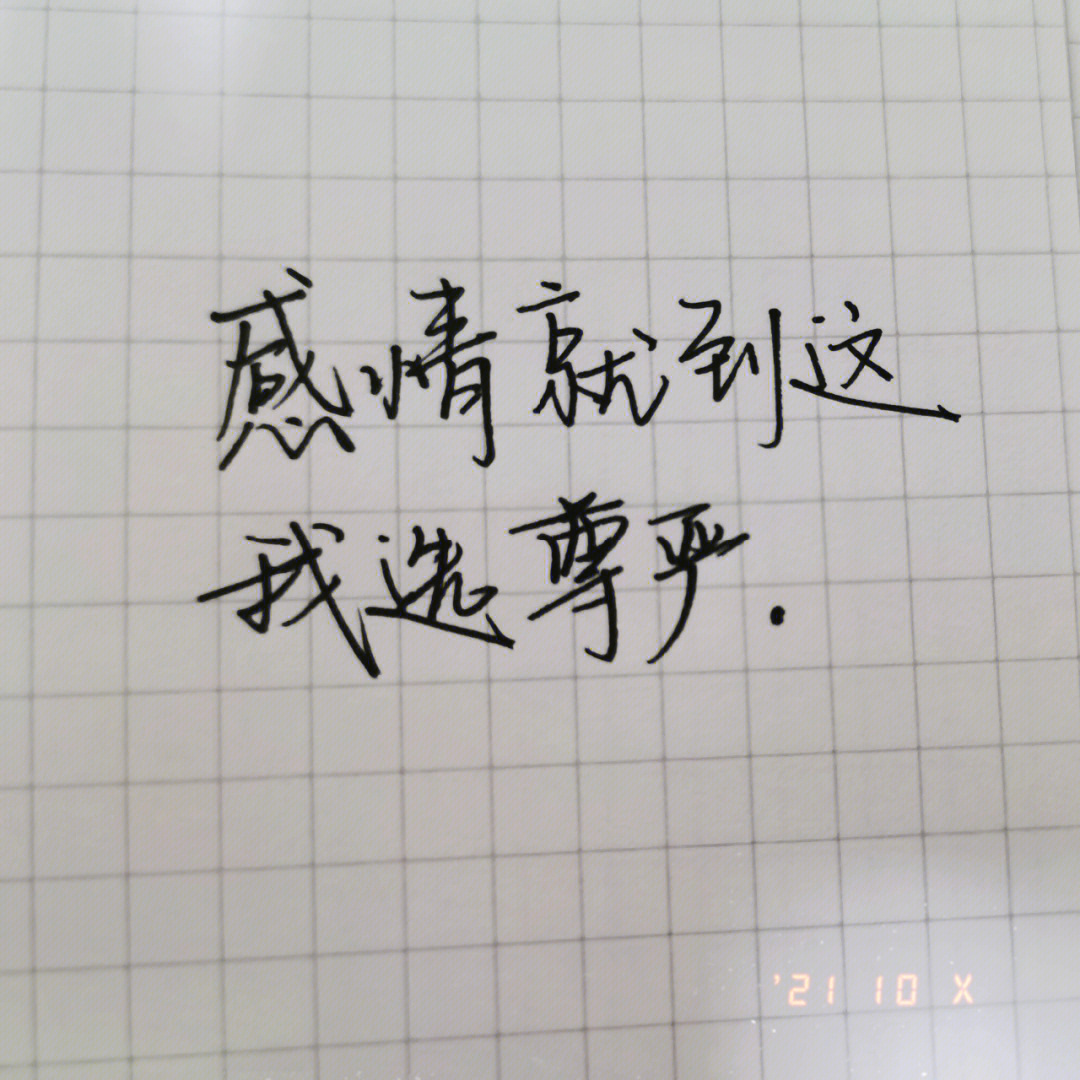 感情就到这
我选尊严.
'21 10 X